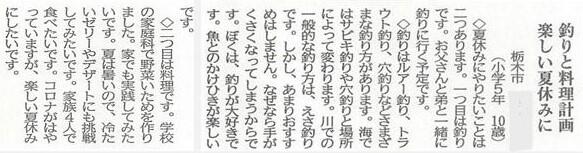 釣りと料理計画
楽しい夏休みに
栃木市
(小学5年 10歳)
◇夏休みにやりたいことは
二つあります。一つ目は釣り
です。お父さんと弟と一緒に
釣りに行く予定です。
◇釣りはルアー釣り、トラ
ウト釣り、穴釣りなどさまざ
まな釣り方があります。海で
はサビキ釣りや穴釣りと場所
によって変わります。川での
一般的な釣り方は、えさ釣り
です。しかし、あまりおすす
めはしません。なぜなら手が
くさくなってしまうからで
す。ぼくは、釣りが大好きで
す。魚とのかけひきが楽しい
です。
◇二つ目は料理です。学校
の家庭科で野菜いためを作り
ました。家でも実践してみた
いです。夏は暑いので、冷た
いゼリーやデザートにも挑戦
してみたいです。家族4人で
食べたいです。コロナがはや
っていますが、楽しい夏休み
にしたいです。